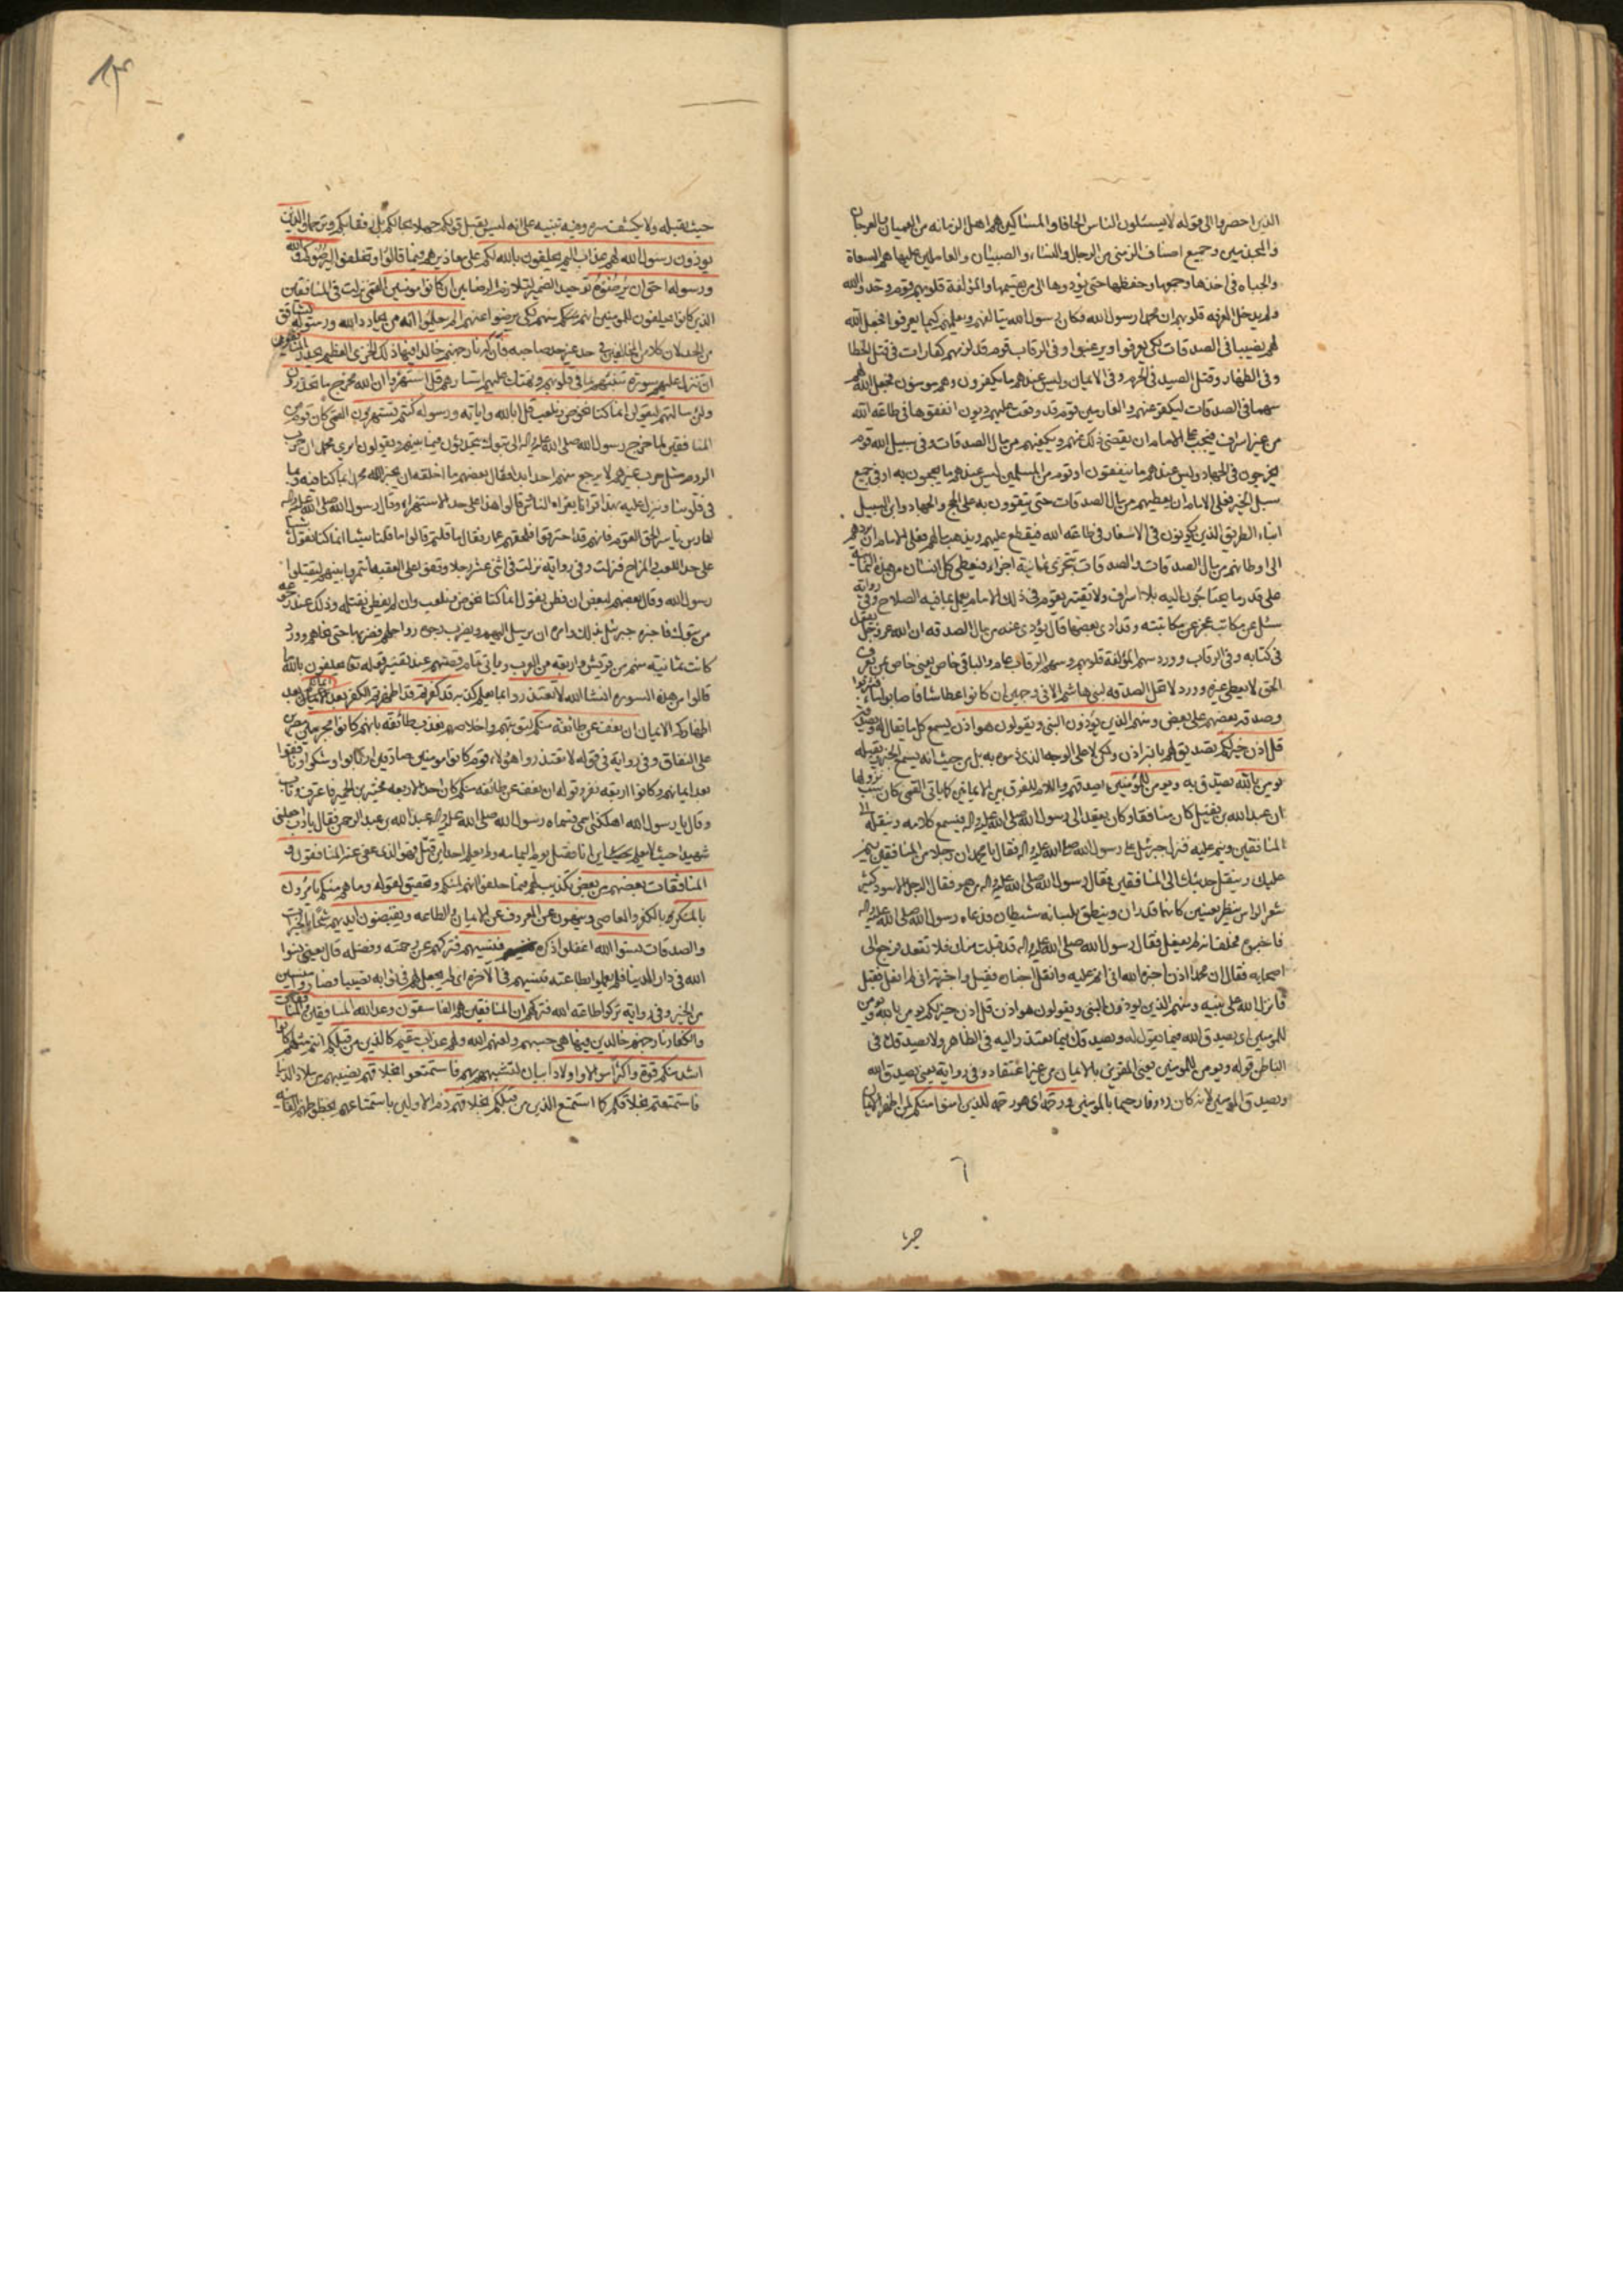 الذين احصروا الى قوله لا يسئلون الناس الحافا والمساكين هم اهل الزمانه من العميان والعرجان
والمجذمين وجميع اصناف الزمنى من الرجال والنساء والصبيان والعاملين عليها هم السعاة
والجباه في اخذها وجمعها وحفظها حتى يؤدوها الى من يقسمها والمؤلفة قلوبهم قوم وحدوا الله
ولم يدخل المعرفه قلوبهم ان محمدا رسول الله فكان رسول الله يتالفهم ويعلمهم كيما يعرفوا فجعل الله
لهم نصيبا في الصدقات لكي يعرفوا ويرغبوا وفي الرقاب قوم قد لزمهم كفارات في قتل الخطا
وفي الظهار وقتل الصيد في الحرم وفي الايمان وليس عندهم ما يكفرون وهم مومنون فجعل الله لهم
سهما في الصدقات ليكفر عنهم والغارمين قوم قد وقعت عليهم ديون انفقوها في طاعه الله
من غير اسراف فيجب على الامام ان يقضي ذلك عنهم ويكفيهم من مال الصدقات وفي سبيل الله قوم
يخرجون في الجهاد وليس عندهم ما ينفقون او قوم من المسلمين ليس عندهم ما يحجون به او في جميع
سبل الخير فعلى الامام ان يعطيهم من مال الصدقات حتى يتقوون به على الحج والجهاد وابن السبيل
ابناء الطريق الذين يكونون في الاسفار في طاعه الله فيقطع عليهم ويذهب مالهم فعلى الامام ان يردهم
الى اوطانهم من مال الصدقات والصدقات تتجزى ثمانية اجزاء فيعطى كل انسان من هذه الثمانيه
على قدر ما يحتاجون اليه بلا اسراف ولا تقتير يقوم في ذلك الامام يعمل بما فيه الصلاح وفي روايه
سئل عن مكاتب عجز عن مكاتبته وقد ادى بعضها قال يؤدى عنه من مال الصدقه ان الله عز وجل يقول
في كتابه وفي الرقاب وورد سهم المؤلفة قلوبهم وسهم الرقاب عام والباقي خاص يعني خاص بمن يعرف
الحق لا يعطى غيره وورد لا تحل الصدقه لبني هاشم الا في وجهين ان كانوا عطاشا فاصابوا ماء فشربوا
وصدقه بعضهم على بعض ومنهم الذين يؤذون النبي ويقولون هو اذن يسمع كل ما يقال له ويصدقه
قل اذن خير لكم تصديق لهم بانه اذن ولكن لا على الوجه الذي ذموه به بل من حيث انه يسمع الخير ويقبله
يومن بالله يصدق به ويومن للمؤمنين يصدقهم واللام للفرق بين الايمانين كما ياتي القمي كان سبب نزولها
ان عبدالله بن نفيل كان منافقا وكان يقعد الى رسول الله صلى الله عليه واله فيسمع كلامه وينقله الى
المنافقين وينم عليه فنزل جبرئيل على رسول الله صلى الله عليه واله فقال يا محمد ان رجلا من المنافقين ينم
عليك وينقل حديثك الى المنافقين فقال رسول الله صلى الله عليه واله من هو فقال الرجل الاسود كثير
شعر الراس ينظر بعينين كانهما قدران وينطق بلسانه شيطان فدعاه رسول الله صلى الله عليه واله
فاخبره فحلف انه لم يفعل فقال رسول الله صلى الله عليه واله قد قبلت منك فلا تقعد فرجع الى
اصحابه فقال ان محمدا اذن اخبره الله اني انم عليه وانقل اخباره فقبل واخبرته اني لم افعل فقبل
فانزل الله على نبيه ومنهم الذين يوذون النبي ويقولون هو اذن قل اذن خير لكم يومن بالله ويومن
للمومنين اي يصدق الله فيما يقول له ويصدقك فيما تعتذر اليه في الظاهر ولا يصدقك في
الباطن قوله ويومن للمومنين يعني المقرين بالايمان من غير اعتقاد وفي رواية يعني يصدق الله
ويصدق المؤمنين لانه كان رءوفا رحيما بالمومنين ورحمة اي هو رحمه للذين امنوا منكم لمن اظهر الايمان
٦
حيث
حيث يقبله ولا يكشف سره وفيه تنبيه على انه ليس يقبل قولكم جهلا بحالكم بل رفقا بكم وترحما والذين
يوذون رسول الله لهم عذاب اليم يحلفون بالله لكم على معاذيرهم فيما قالوا او تخلفوا ليرضوكم والله
ورسوله احق ان يرضوه توحيد الضمير لتلازم الرضاءين ان كانوا مومنين القمي نزلت في المنافقين
الذين كانوا يحلفون للمومنين انهم منهم لكي يرضوا عنهم الم يعلموا انه من يحادد الله ورسوله يشاقق
من الحد لان كلا من المتخالفين في حد غير حد صاحبه فان له نار جهنم خالدا فيها ذلك الخزي العظيم يحذر المنافقون
ان تنزل عليهم سورة تنبئهم بما في قلوبهم وتهتك عليهم استارهم قل استهزؤا ان الله مخرج ما تحذرون
ولئن سالتهم ليقولن انما كنا نخوض ونلعب قل ابالله واياته ورسوله كنتم تستهزون القمي كان قوم من
المنافقين لما خرج رسول الله صلى الله عليه واله الى تبوك يتحدثون فيما بينهم ويقولون ايرى محمد ان حرب
الروم مثل حرب غيرهم لا يرجع منهم احد ابدا فقال بعضهم ما اخلقه ان يخبر الله محمدا بما كنا فيه وبما
في قلوبنا وينزل عليه بهذا قرانا يقراه الناس وقالوا هذا على حد الاستهزاء وقال رسول الله صلى الله عليه واله
لعمار بن ياسر الحق القوم فانهم قد احترقوا فلحقهم عمار فقال ما قلتم قالوا ما قلنا شيئا انما كنا نقول شيئا
على حد اللعب والمزاح فنزلت وفي رواية نزلت في اثني عشر رجلا وقفوا على العقبه ائتمروا بينهم ليقتلوا
رسول الله وقال بعضهم لبعض ان فطن نقول انما كنا نخوض ونلعب وان لم يفطن نقتله وذلك عند رجوعه
من تبوك فاخبره جبرئيل بذلك وامره ان يرسل اليهم ويضرب وجوه رواحلهم فضربها حتى نحاهم وورد
كانت ثمانية منهم من قريش واربعه من العرب وياتي تمام قصتهم عند تفسير قوله تعالى يحلفون بالله ما
قالوا من هذه السوره انشاء الله لا تعتذروا بما يعلم كذبه قد كفرتم قد اظهرتم الكفر بعد ايمانكم بعد
اظهاركم الايمان ان نعف عن طائفة منكم لتوبتهم واخلاصهم نعذب طائفة بانهم كانوا مجرمين مصرين
على النفاق وفي رواية في قوله لا تعتذروا هؤلاء قوم كانوا مومنين صادقين ارتابوا وشكوا ونافقوا
بعد ايمانهم وكانوا اربعة نفر وقوله ان نعف عن طائفه منكم كان احد الاربعه مخشي بن الحمير فاعترف وتاب
وقال يا رسول الله اهلكني اسمي فسماه رسول الله صلى الله عليه واله عبدالله بن عبدالرحمن فقال يا رب اجعلني
شهيدا حيث لا يعلم احد اين انا فقتل يوم اليمامه ولم يعلم احد اين قتل فهو الذي عفي عنه المنافقون و
المنافقات بعضهم من بعض تكذيب لهم فيما حلفوا انهم لمنكم وتحقيق لقوله وما هم منكم يامرون
بالمنكر بالكفر والمعاصي وينهون عن المعروف عن الايمان والطاعه ويقبضون ايديهم شحا بالخيرات
والصدقات نسوا الله اغفلوا ذكره فنسيهم فتركهم عن رحمته وفضله قال يعني نسوا
الله في دار الدنيا فلم يعملوا بطاعته فنسيهم في الاخرة اي لم يجعل لهم في ثوابه نصيبا فصاروا منسيين
من الخير وفي رواية تركوا طاعه الله فتركهم ان المنافقين هم الفاسقون وعد الله المنافقين والمنافقات
والكفار نار جهنم خالدين فيها هي حسبهم ولعنهم الله ولهم عذاب مقيم كالذين من قبلكم انتم مثلهم كانوا
اشد منكم قوة واكثر اموالا واولادا بيان لتشبيههم بهم فاستمتعوا بخلاقهم نصيبهم من ملاذ الدنيا
فاستمتعتم بخلاقكم كما استمتع الذين من قبلكم بخلاقهم ذم الاولين باستمتاعهم بحظوظهم الفانيه